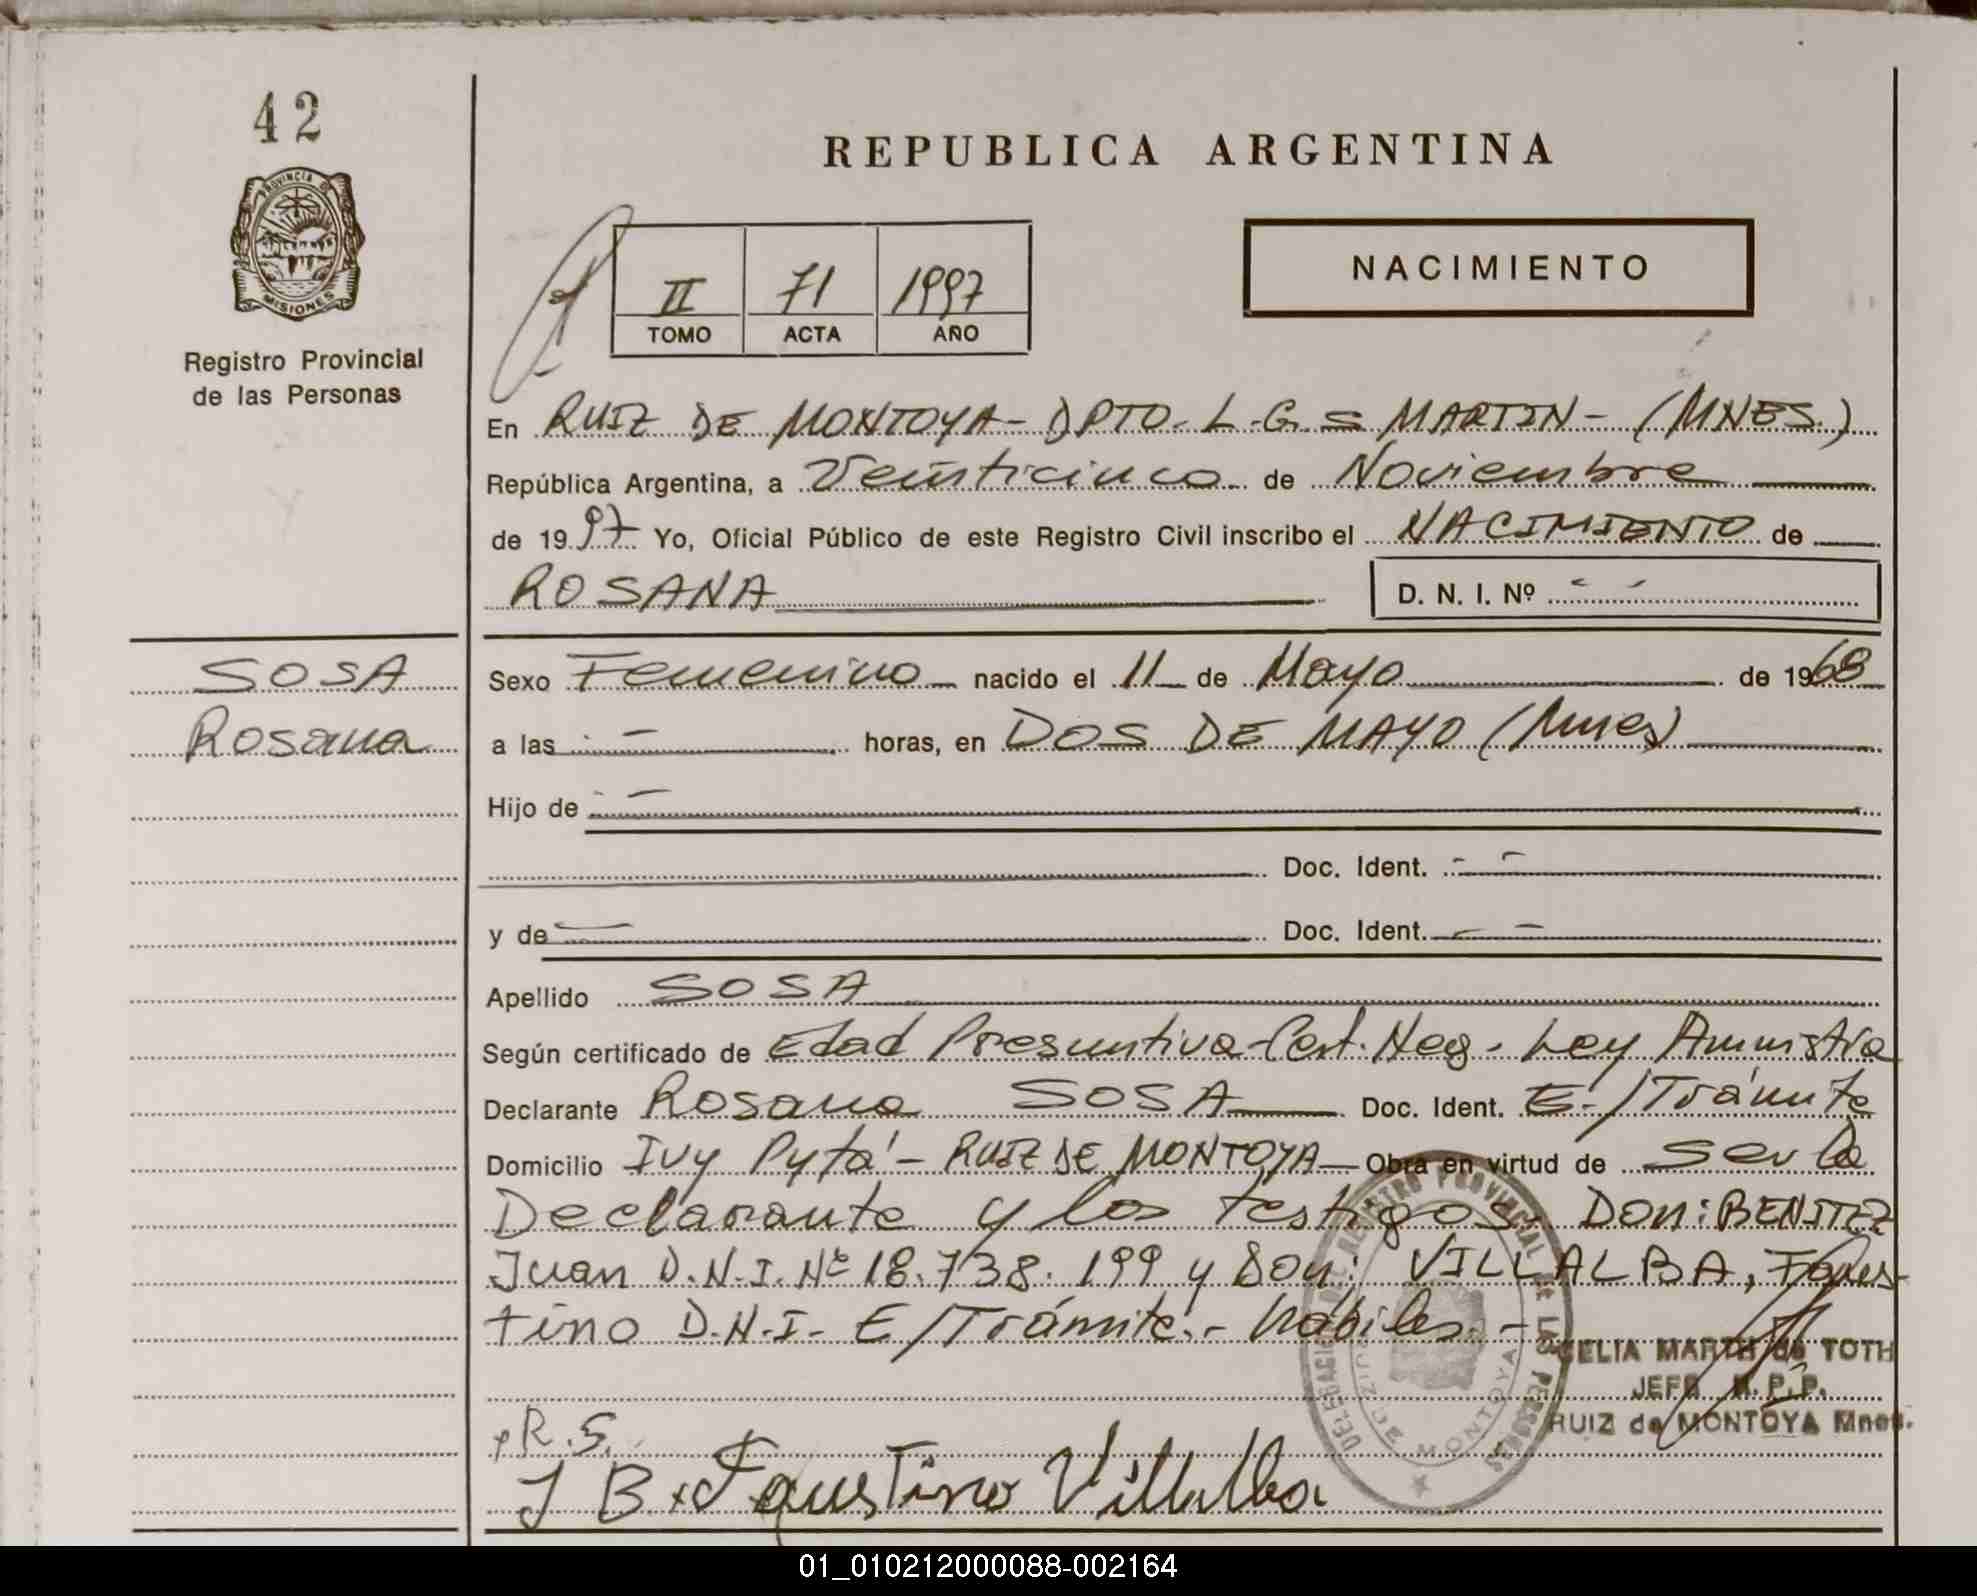 42
REPUBLICA ARGENTINA
PROVINCIA DE
MISIONES
II 71 1997
TOMO ACTA AÑO
NACIMIENTO
Registro Provincial
de las Personas
En RUIZ DE MONTOYA- DPTO- L.G. S MARTIN- (MNES.)
República Argentina, a Veinticinco de Noviembre
de 1997 Yo, Oficial Público de este Registro Civil inscribo el NACIMIENTO de
ROSANA D. N. I. Nº - -
SOSA
Rosana
Sexo Femenino nacido el 11 de Mayo de 1968
a las - horas, en DOS DE MAYO (Mnes)
Hijo de -
Doc. Ident. - -
y de - Doc. Ident. - -
Apellido SOSA
Según certificado de Edad Presuntiva-Cert. Neg. Ley Amnistia
Declarante Rosana SOSA Doc. Ident. E./Trámite
Domicilio Ivy Pytá - RUIZ DE MONTOYA Obra en virtud de ser la
Declarante y los testigos Don: BENITEZ
Juan D.N.I. Nº 18.738.199 y Don: VILLALBA, Faus-
tino D.N.I- E/Trámite.- hábiles.-
DELEGACION DEL REGISTRO PROVINCIAL DE LAS PERSONAS
RUIZ DE MONTOYA
CELIA MARTH de TOTH
JEFE R.P.P.
RUIZ de MONTOYA Mnes.
R.S.
J B x Faustino Villalba
01_010212000088-002164